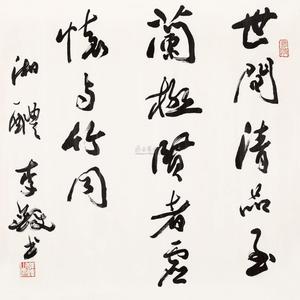 世間清品至
蘭極賢者虛
懷与竹同
湘醴李书